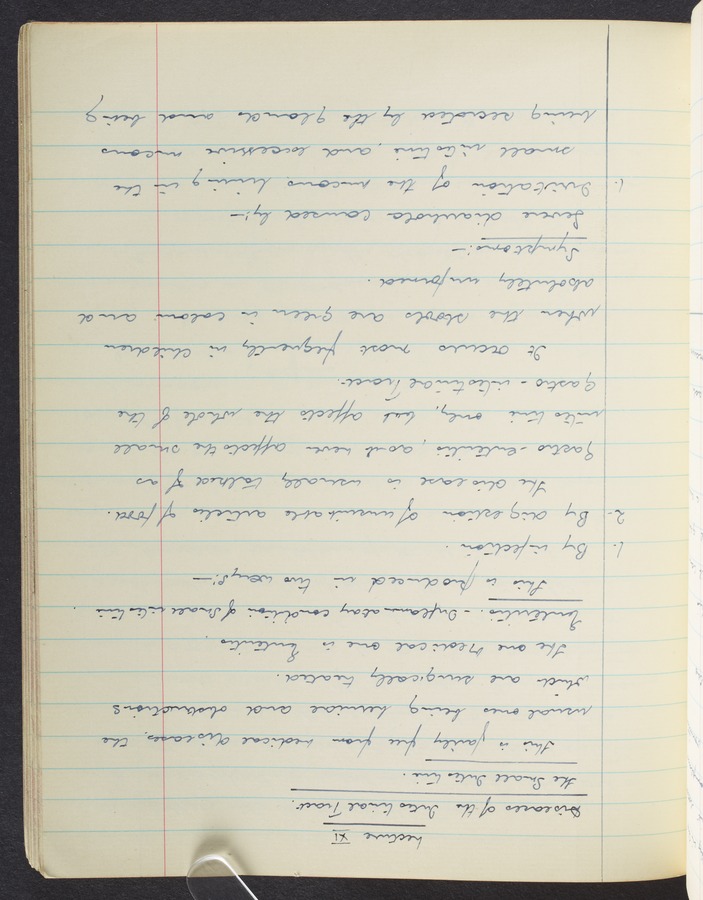 Lecture XI
Diseases of the Intestinal Tract.
The Small Intestine.
This is fairly free from medical diseases, the
usual ones being herniae and obstructions
which are surgically treated.
The one medical one is Enteritis.
Enteritis. - Inflammatory condition of Small intestine.
This is produced in two ways:-
1. By infection.
2. By digestion of unsuitable articles of food.
The disease is usually talked of as
Gastro-enteritis, and never affects the small
intestine only, but affects the whole of the
gastro-intestinal Tract.
It occurs most frequently in children
when the stools are green in colour and
absolutely unformed.
Symptoms:-
Severe diarrhoea caused by:-
1. Irritation of the mucous lining in the
small intestine, and excessive mucous
being secreted by the glands and being